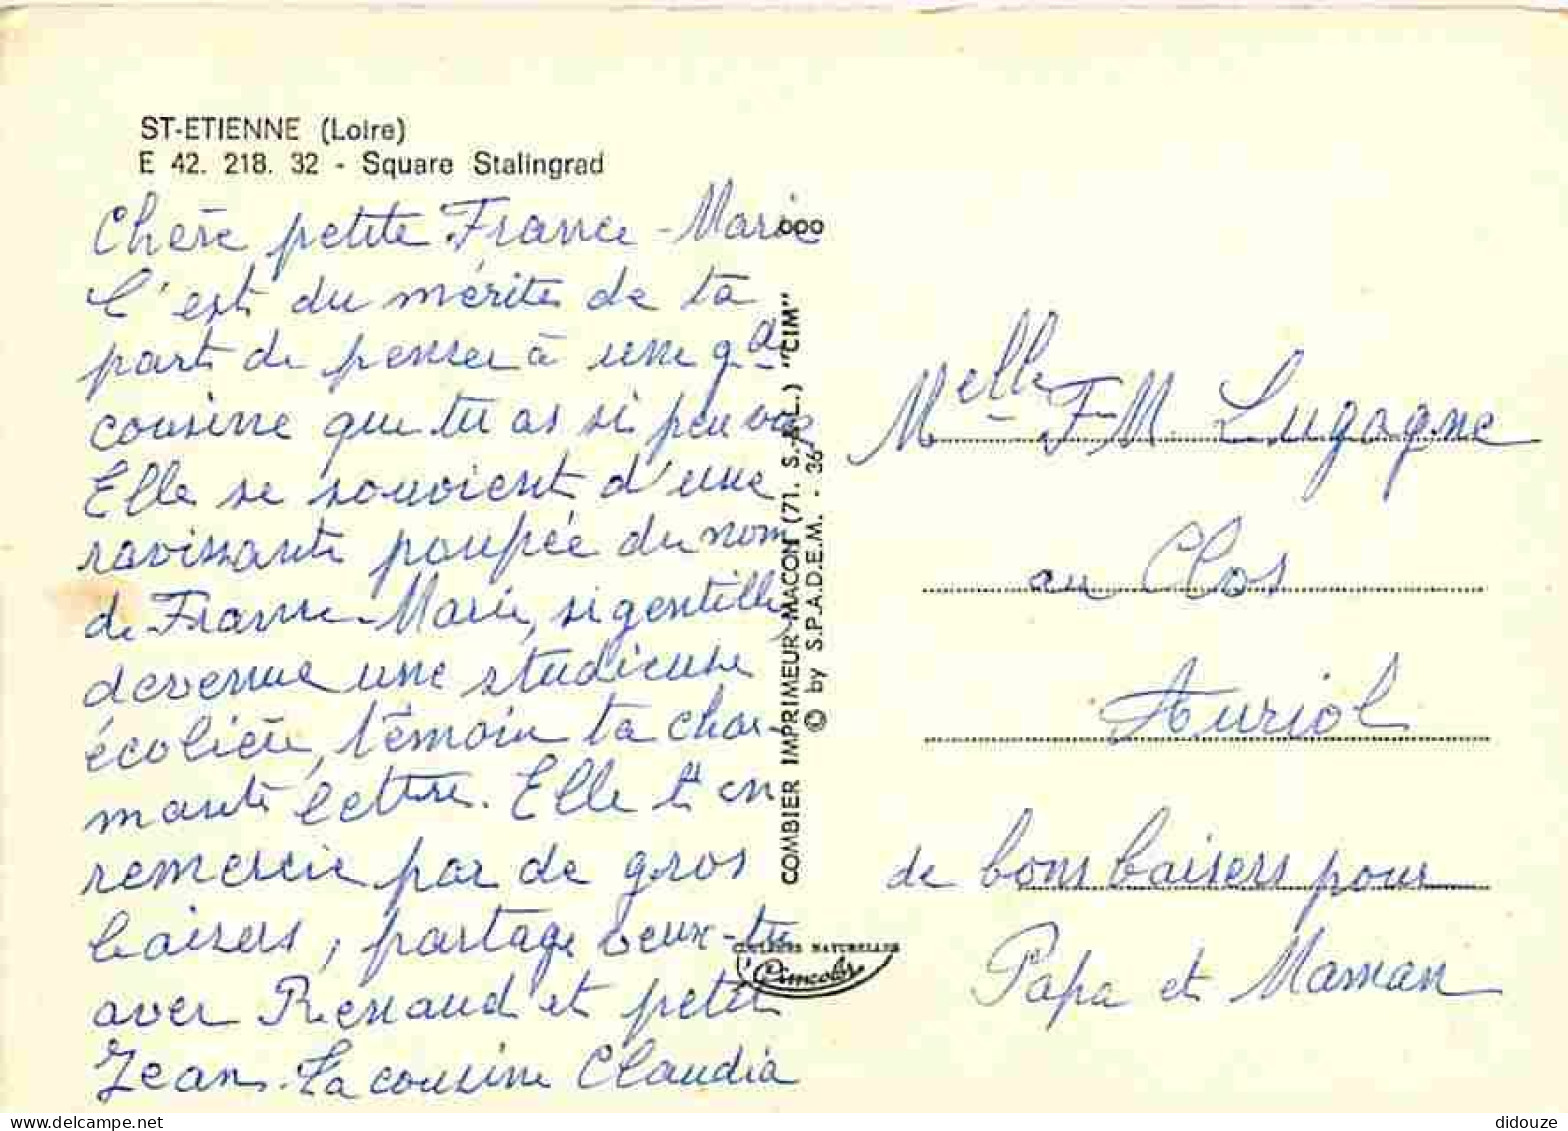 ST-ETIENNE (Loire)
E 42. 218. 32 - Square Stalingrad
Chère petite France-Marie
C'est du mérite de ta
part de penser à une gde
cousine que tu as si peu vue
Elle se souvient d'une
ravissante poupée du nom
de France-Marie, si gentille,
devenue une studieuse
écolière, témoin ta char-
mante lettre. Elle t'en
remercie par de gros
baisers, partage veux-tu
avec Renaud et petit
Jean. La cousine Claudia
COMBIER IMPRIMEUR MACON (71. S.A.L.) "CIM"
© by S.P.A.D.E.M. - 36
COULEURS NATURELLES
Cimcolor
Melle F.M. Lugagne
au Clos
Auriol
de bons baisers pour
Papa et Maman
didouze